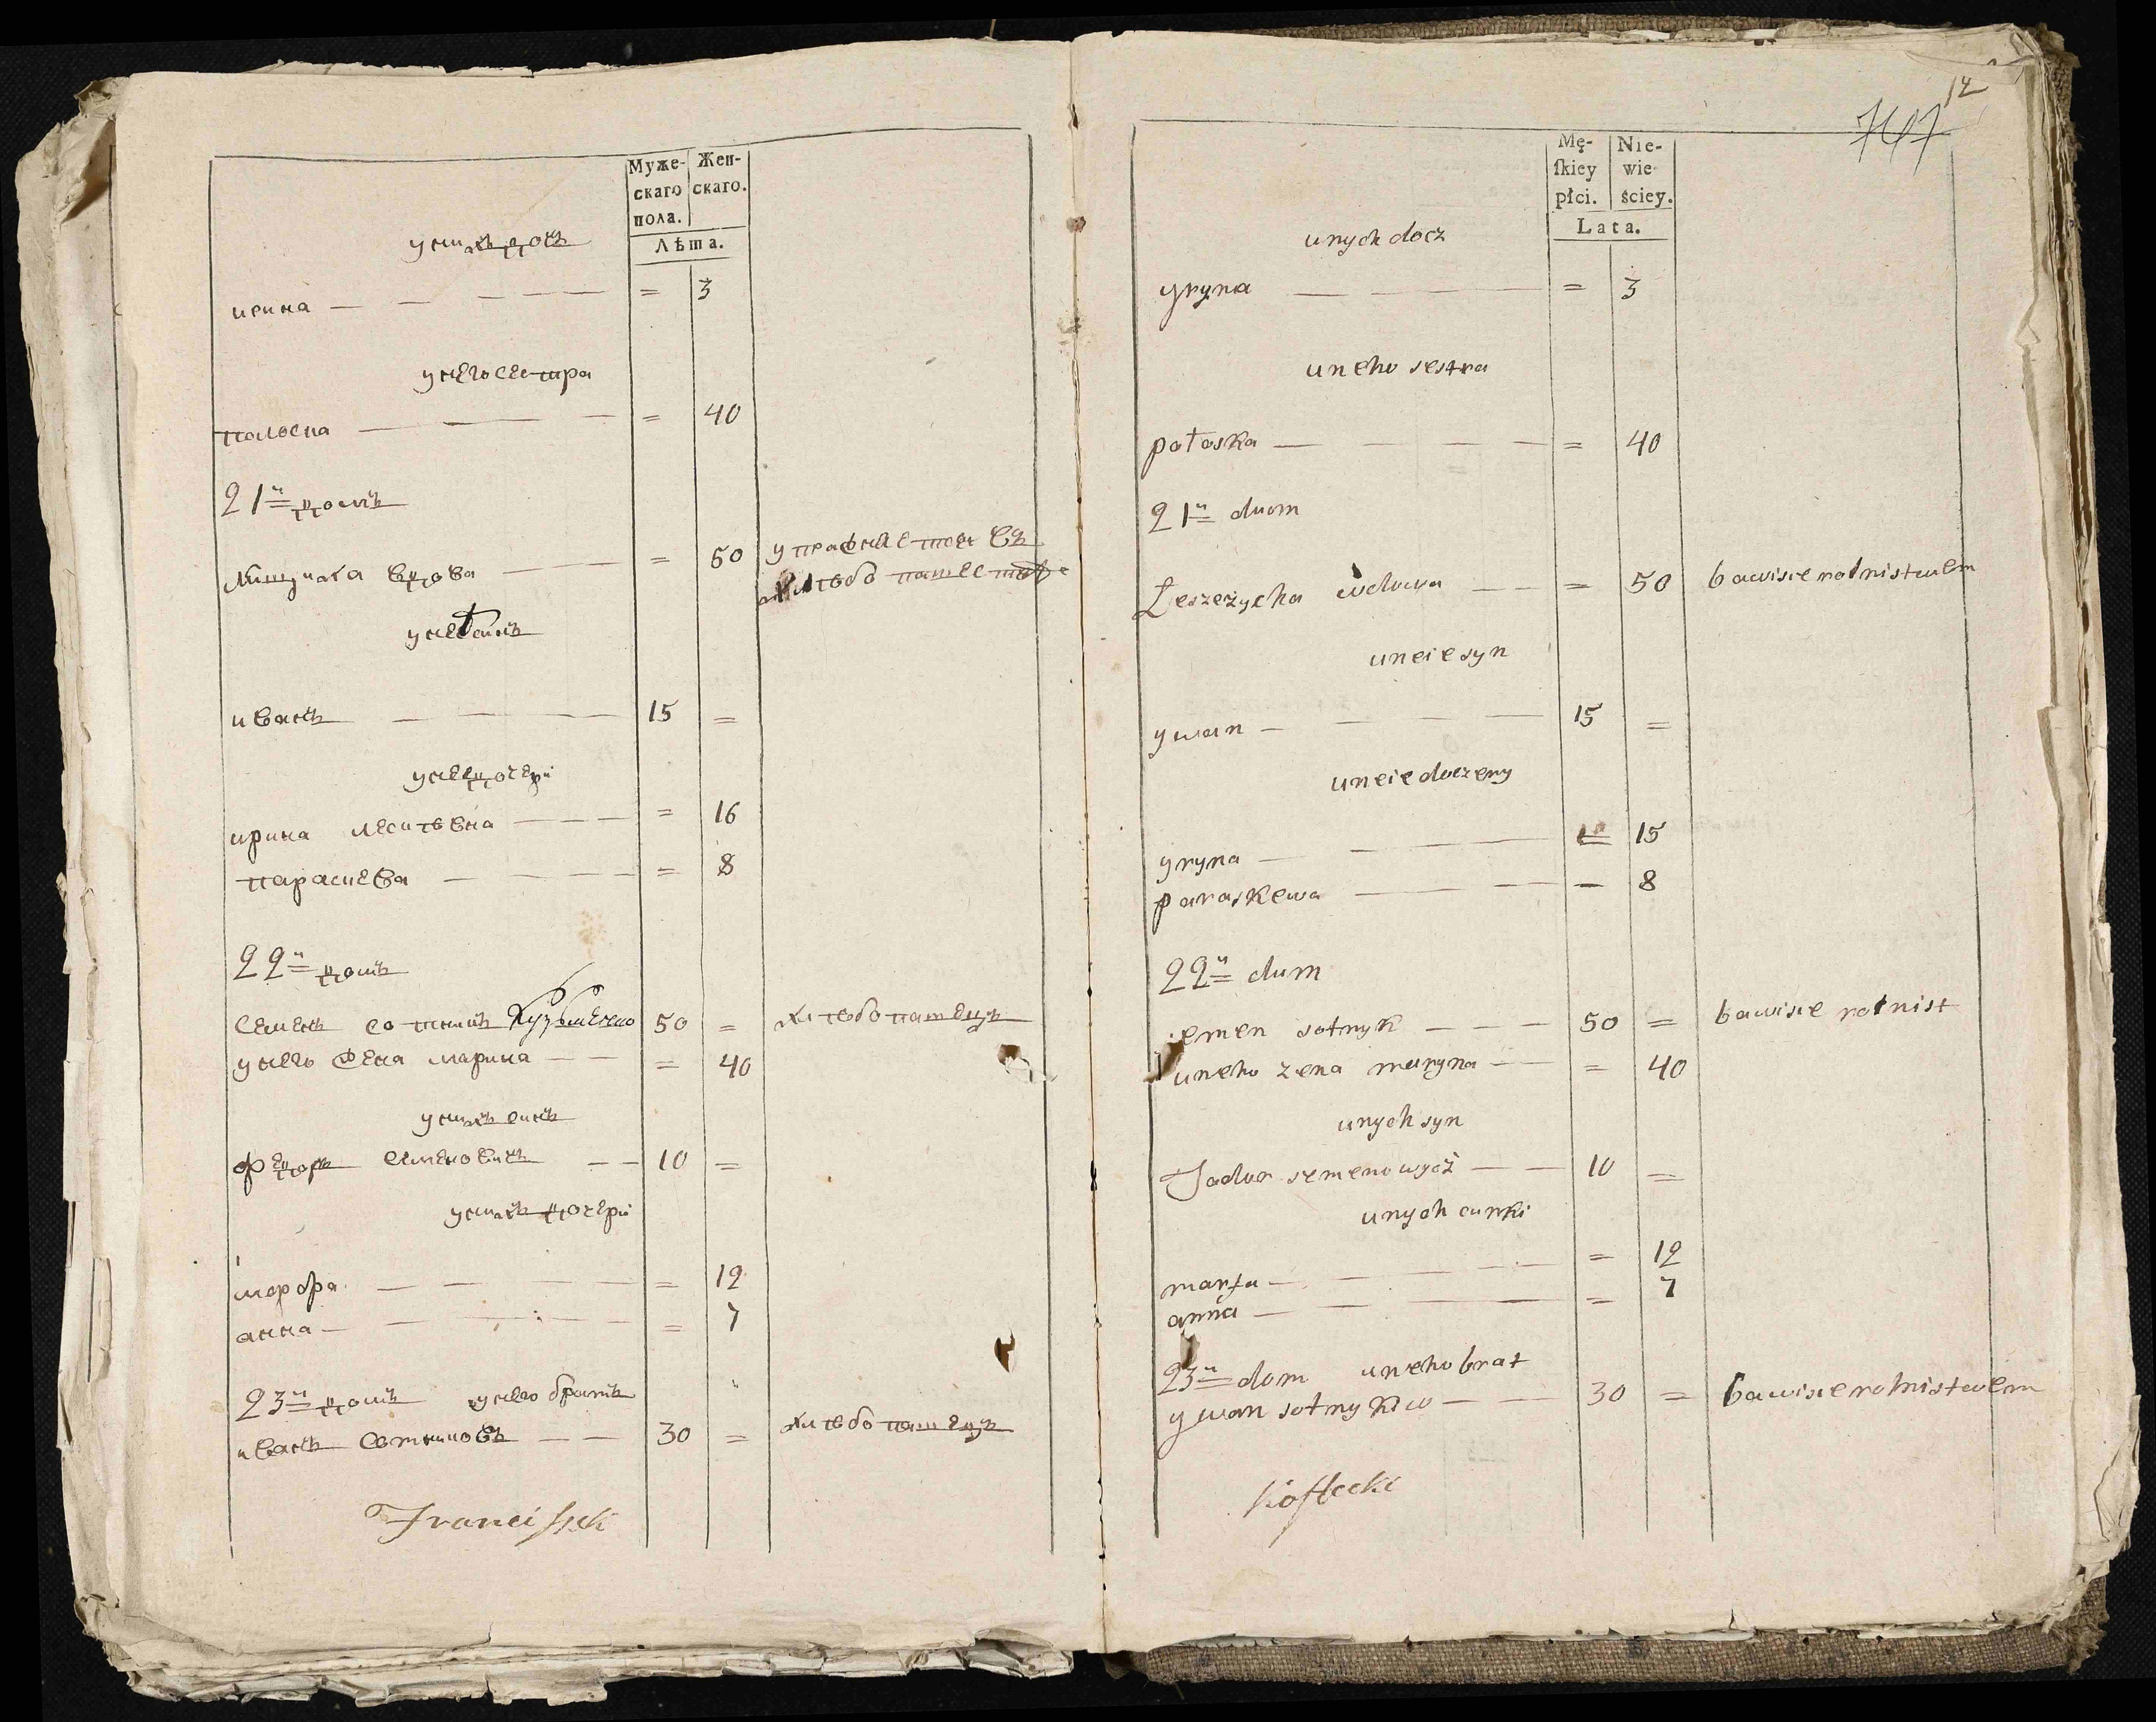 Муже-
скаго
пола.
Жен-
скаго.
Лѣта.
унихъ дочъ
ирина — — — — — = 3
унего сестра
палоска — — — = 40
21й домъ
вдова — — = 50 упражняется въ
хлѣбопашестве
унее синъ
иванъ — — — 15 =
унее дочери
ирина — — — = 16
параскева — — — = 8
22й домъ
семенъ сотникъ Кузьменко 50 = хлѣбопашецъ
унего жена марина — — = 40
унихъ синъ
федоръ семеновичъ — — 10 =
унихъ дочери
марфа — — — — = 12
анна — — — — = 7
23й домъ унего братъ
иванъ сотниковъ — — 30 = хлѣбопашецъ
Franciszek
12
747
Mę-
skiey
płci.
Nie-
wie-
ściey.
Lata.
unych docz
yryna — — — = 3
uneho sestra
połoska — — — — = 40
21й duom
Leszczycha wdowa — — = 50 bawisie rolnistwem
uneie syn
ywan — — — — 15 =
uneie doczery
yryna — — — = 15
paraskewa — — — — 8
22й dum
semen sotnyk — — — 50 = bawisie rolnist
uneho zena maryna — — = 40
unych syn
Fadur semenowycz — — 10 =
unych curki
marfa — — — — = 12
anna — — — = 7
23й dom uneho brat
ywan sotnykiw — — 30 = bawisie rolnistwem